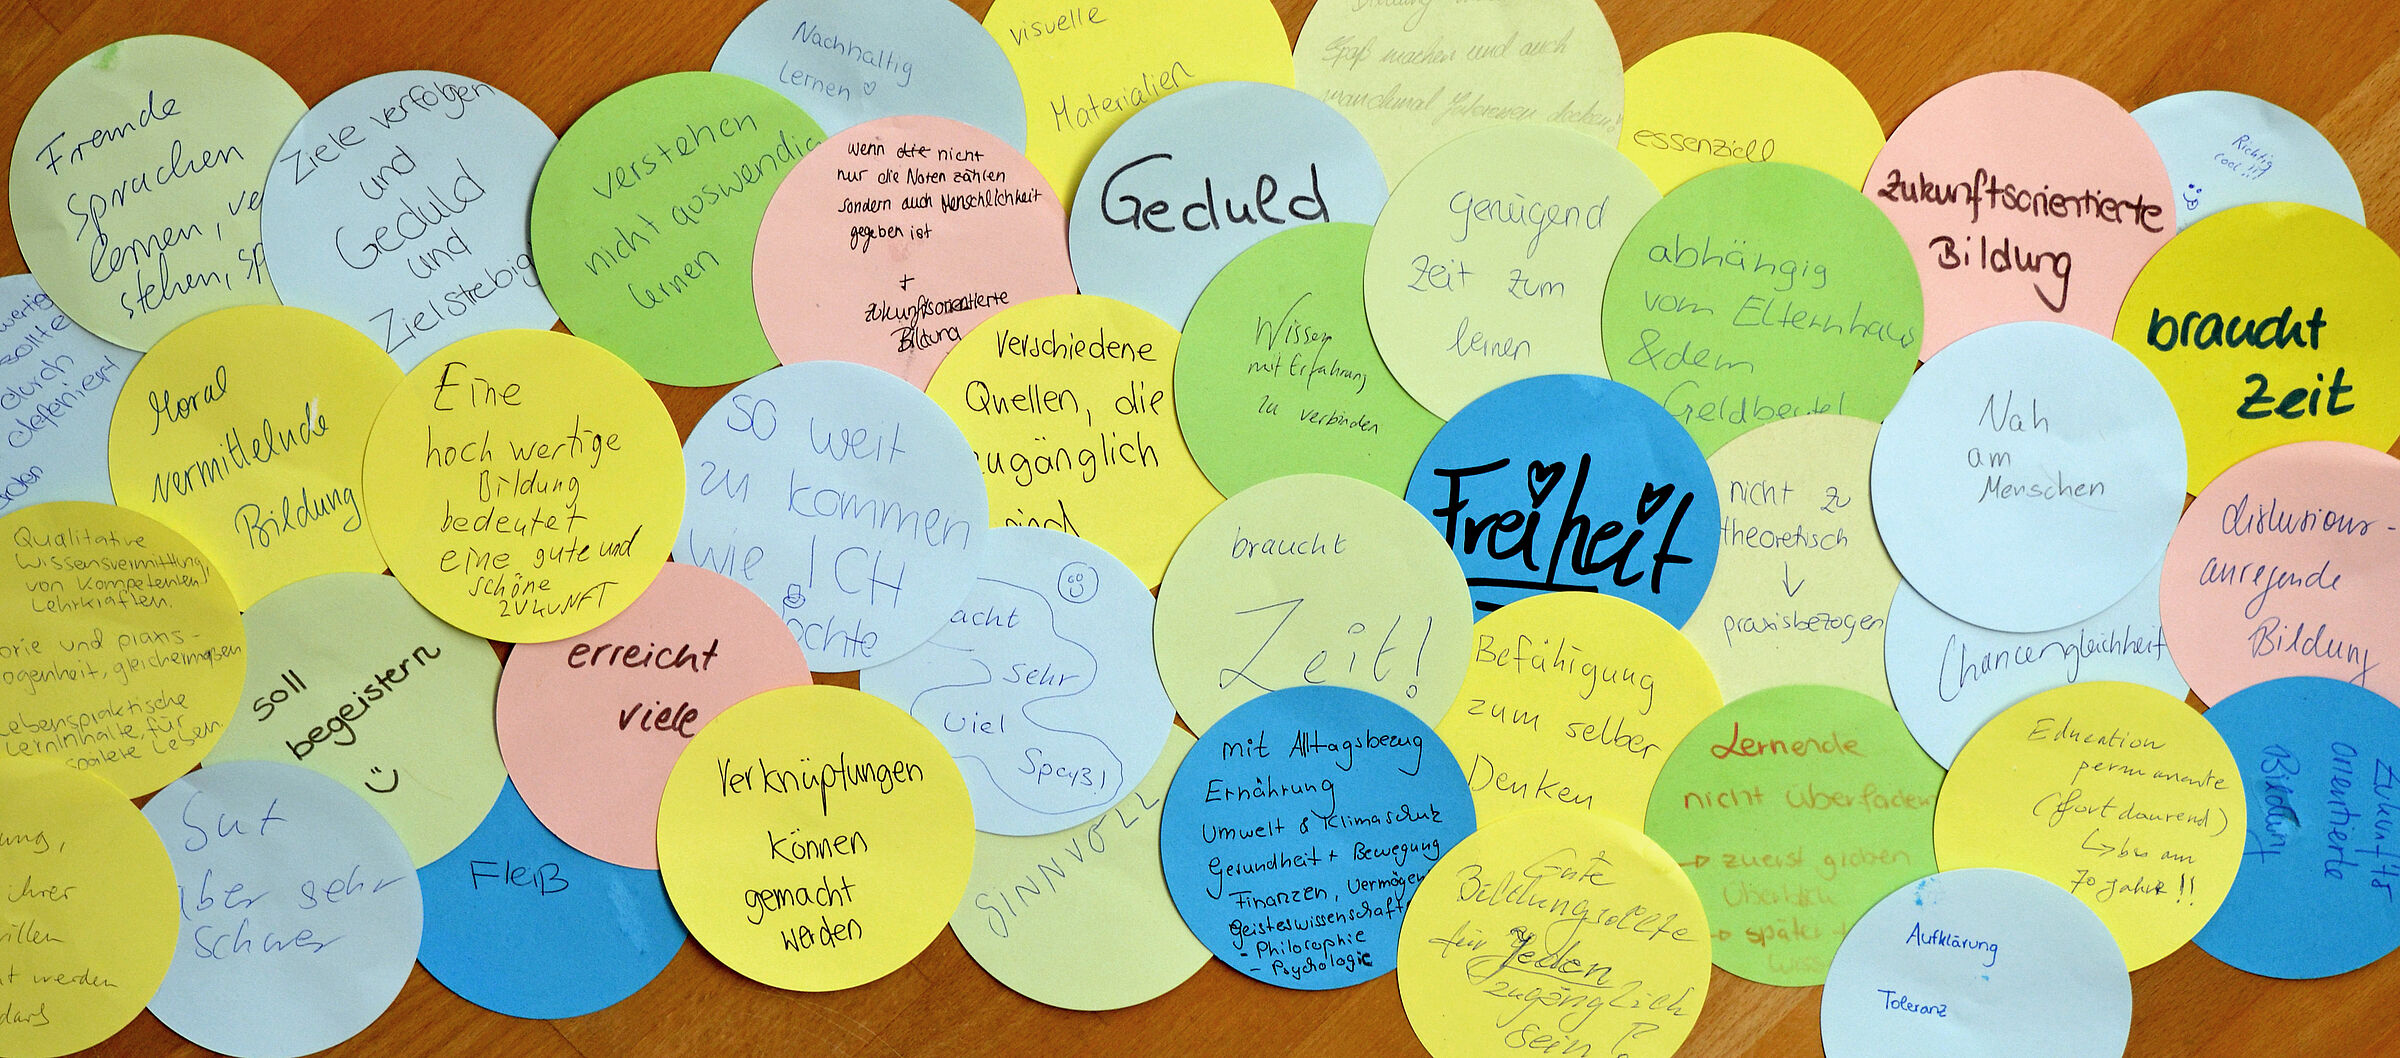 Fremde
Sprachen
lernen, ve
stehen, sp
Ziele verfolgen
und
Geduld
und
Zielstrebig
verstehen
nicht auswendig
lernen
Nachhaltig
Lernen ♡
visuelle
Materialien
Spaß machen und auch
manchmal
essenziell
wenn die nicht
nur die Noten zählen
sondern auch Menschlichkeit
gegeben ist
+
zukunftsorientierte
Bildung
Geduld
genügend
Zeit zum
lernen
abhängig
vom Elternhaus
& dem
Geldbeutel
zukunftsorientierte
Bildung
Richtig
cool!!!
braucht
Zeit
wertig
sollte
durch
definiert
Moral
vermittelnde
Bildung
Eine
hoch wertige
Bildung
bedeutet
eine gute und
schöne
ZUKUNFT
so weit
zu kommen
wie ICH
öchte
Verschiedene
Quellen, die
zugänglich
sind
Wissen
mit Erfahrung
zu verbinden
Freiheit
nicht zu
theoretisch
↓
praxisbezogen
Nah
am
Menschen
diskusions-
anregende
Bildung
Qualitative
Wissensvermittlung,
von Kompetenten
Lehrkräften.
orie und praxis-
ogenheit, gleichermaßen
Lebenspraktische
Lerninhalte, für
spätere Leben
soll
begeistern
erreicht
viele
acht
sehr
viel
Spaß!
braucht
Zeit!
Befähigung
zum selber
Denken
Chancengleichheit
Gut
aber sehr
schwer
Fleiß
Verknüpfungen
können
gemacht
werden
SINNVOLL
mit Alltagsbezug
Ernährung
Umwelt & Klimaschutz
Gesundheit + Bewegung
Finanzen, Vermögen
Geisteswissenschaft
- Philosophie
- Psychologie
Lernende
nicht überladen
→ zuerst groben
Überblick
→ später
Wiss
Education
permanente
(fortdaurend)
↳ bis am
70 Jahre !!
Zukunfts
orientierte
Bildung
ung,
ihrer
illen
t werden
darf
Gute
Bildung sollte
für jeden
zugänglich
sein!
Aufklärung
Toleranz